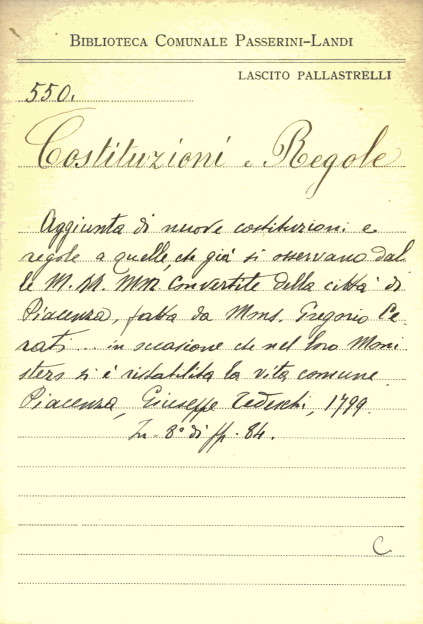 BIBLIOTECA COMUNALE PASSERINI-LANDI
LASCITO PALLASTRELLI
550.
Costituzioni e Regole
Aggiunta di nuove costituzioni e
regole a quelle, che già si osservano dal
le M. M. Convertite della città di
Piacenza, fatta da Mons. Gregorio Ce
rati .. in occasione che nel loro Moni
stero si è ristabilita la vita comune.
Piacenza, Giuseppe Tedeschi, 1799.
In-8° di pp. 84.
C